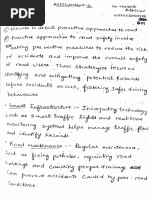 ASSIGNMENT-2
Discuss in detail proactive approaches to road
Proactive approaches to road safety involve
taking preventive measures to reduce the risk
of accidents and improve the overall safety
of road users. These strategies focus on
identifying and mitigating potential hazards
before incidents occurs, rather than reacting
to accidents
• Smart Infrastructure :- Incorporating technology
such as smart traffic lights and real-time
monitoring systems helps manage traffic flow
and identify hazards.
• Road Maintenance :- Regular maintenance,
such as fixing potholes, repainting road
markings and ensuring proper drainage,
can prevent accidents caused by poor road
conditions